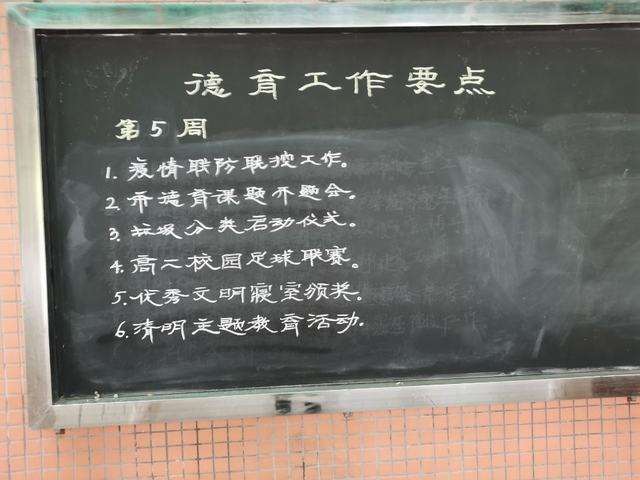 德育工作要点
第5周
1. 疫情联防联控工作。
2. 市德育课题开题会。
3. 垃圾分类启动仪式。
4. 高二校园足球联赛。
5. 优秀文明寝室颁奖。
6. 清明主题教育活动.